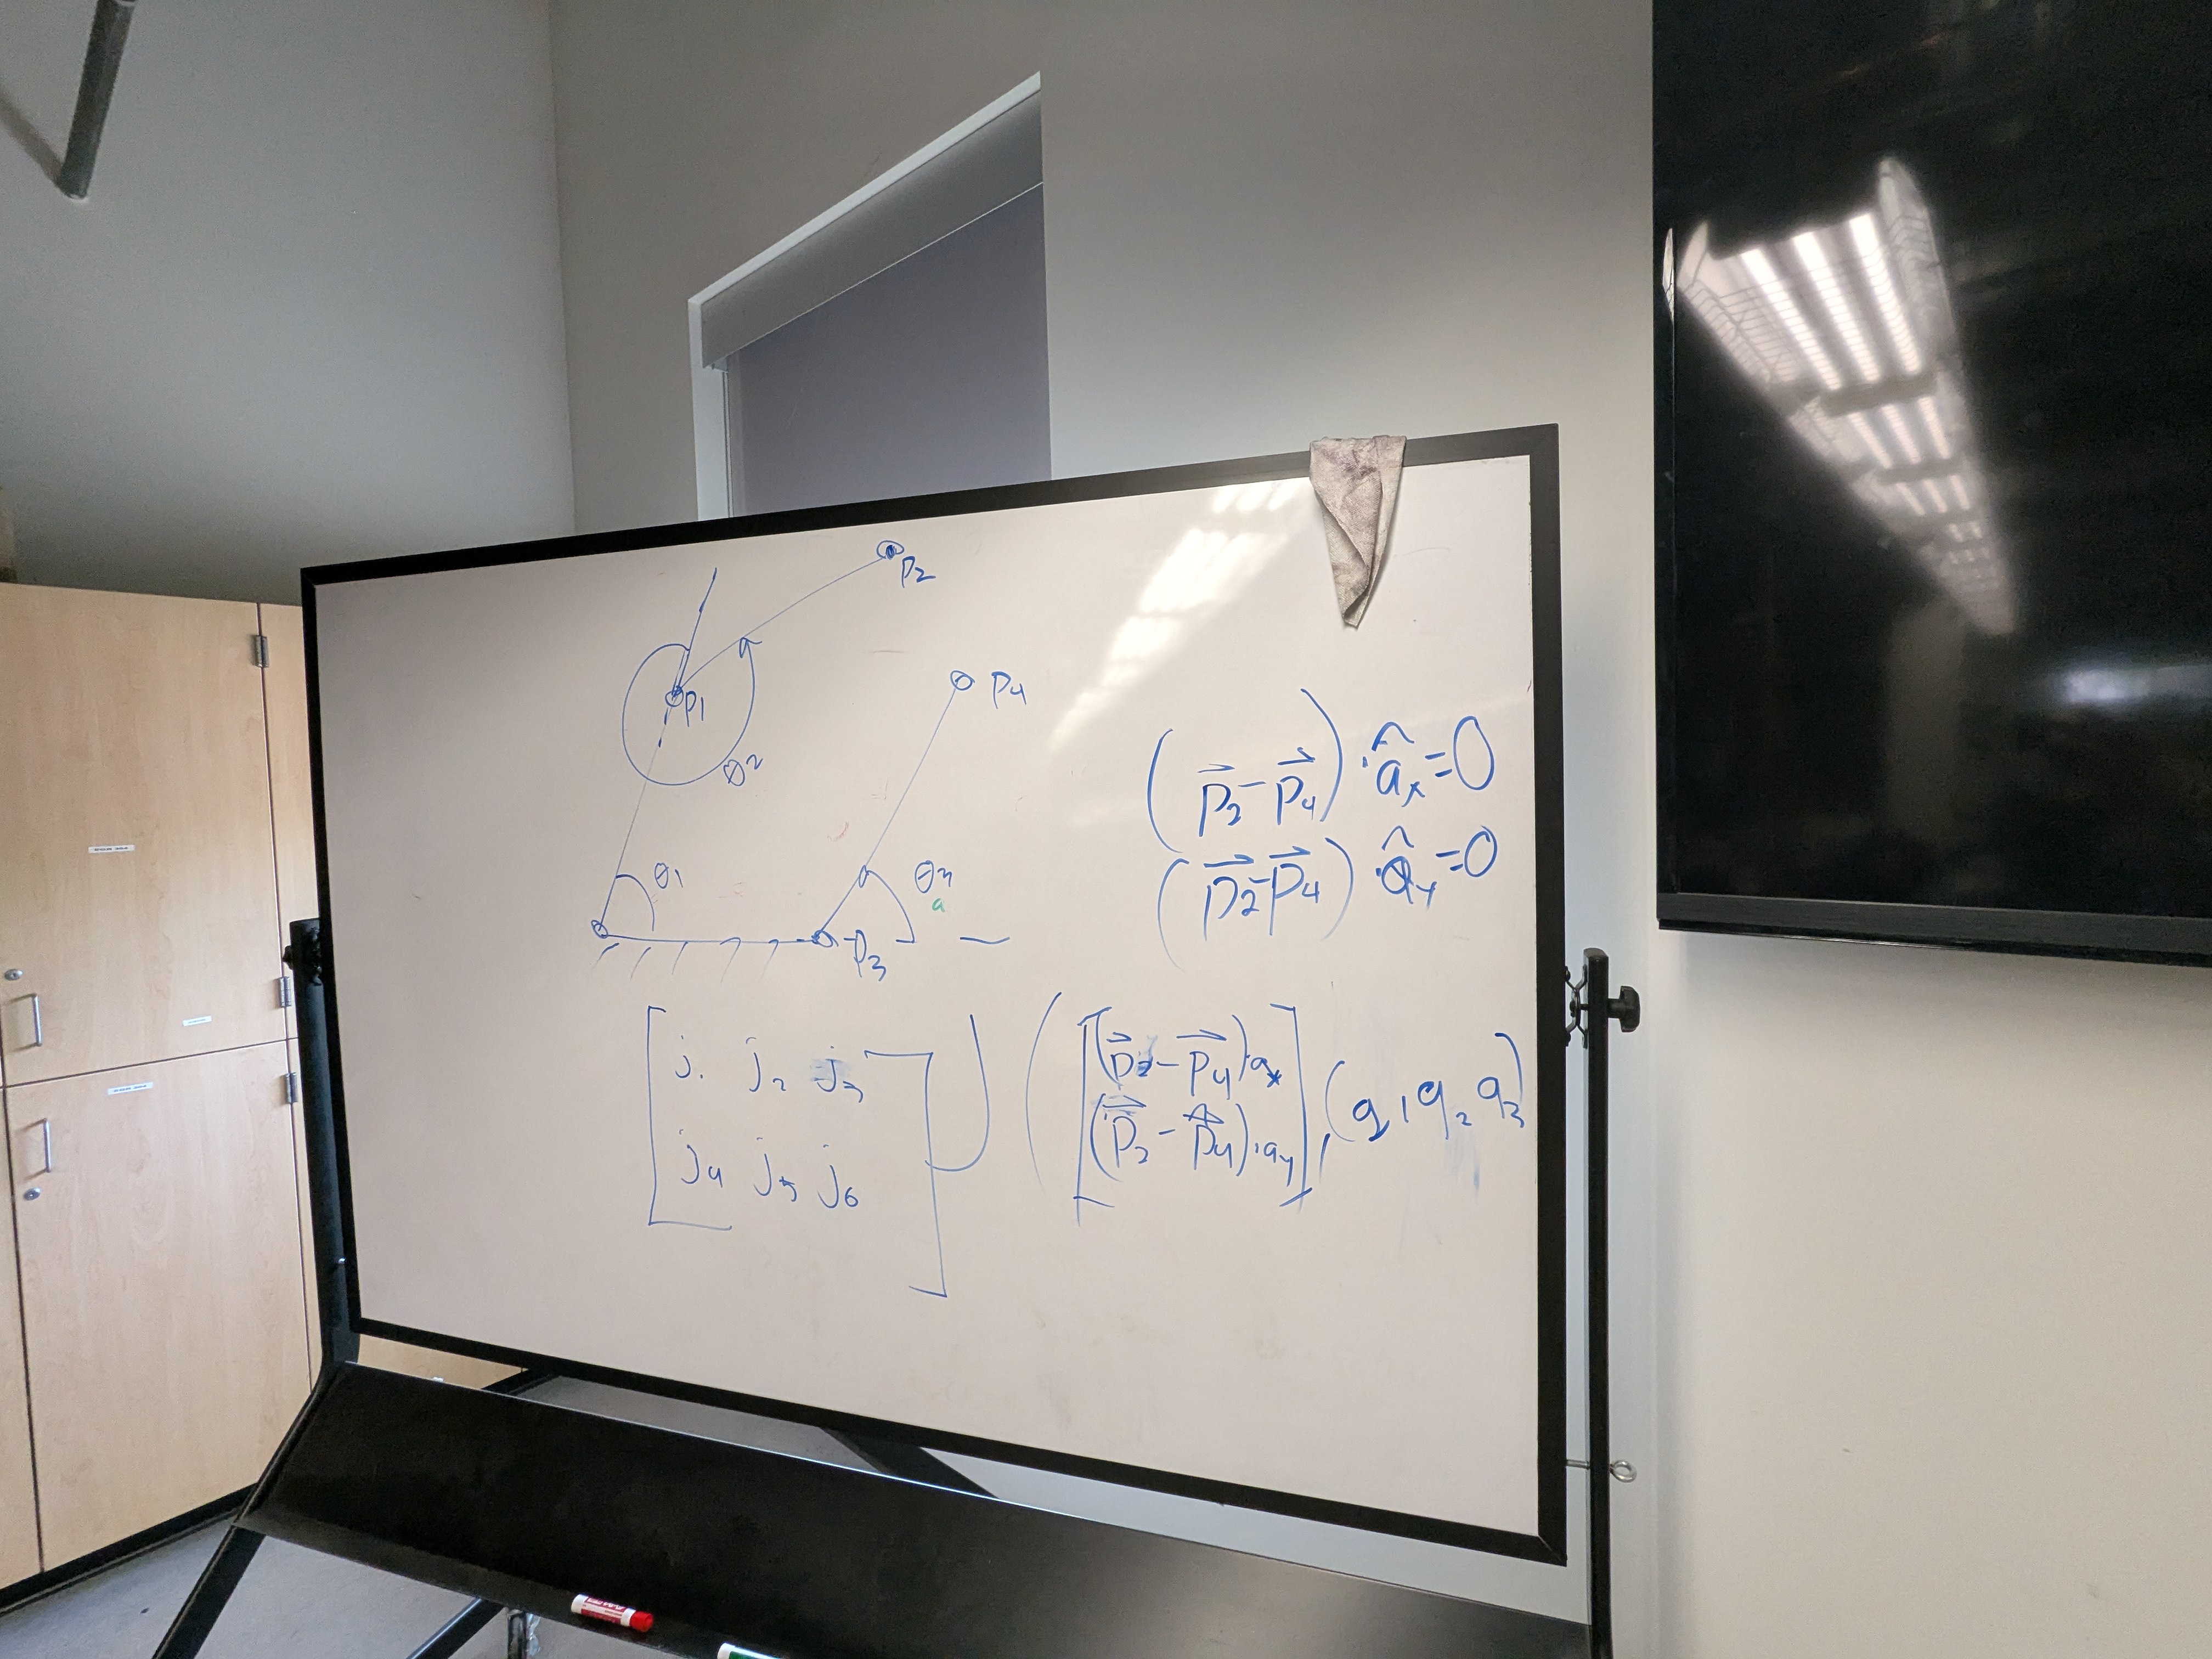 p2
p1
p4
θ2
θ1
θ3
a
p3
(p⃗2 - p⃗4) · âx = 0
(p⃗2 - p⃗4) · ây = 0
[ j1 j2 j3
j4 j5 j6 ]
J ( [ (p⃗2 - p⃗4) · ax
(p⃗2 - p⃗4) · ay ] , (q1 q2 q3)